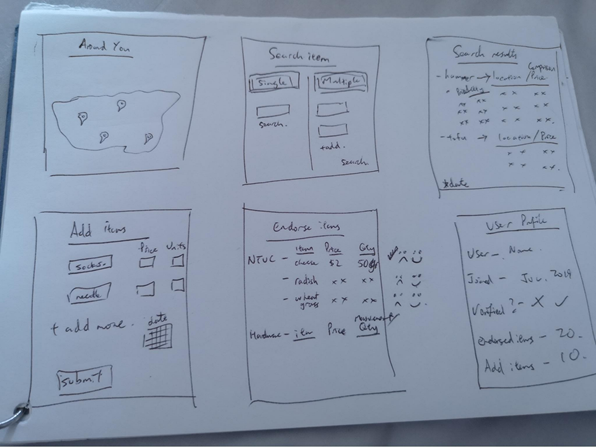 Around You
Search item
Single Multiple
search.
+add.
search
Search results
Price
- hammer → location /
xx xx
xx xx xx xx
xx xx xx xx
- tofu → Location / Price
xx xx
xx xx
*date
Add items
Price Units
needle
+ add more. date
Submit
Endorse items
NTUC - item Price Qty
cheese $2 50gr
- radish xx xx
- wheat grass xx xx
Hardware - item Price Qty
User Profile
User - Name.
Joined - Jul. 2019
Verified? - X ✓
Endorsed items - 20.
Add items - 10.